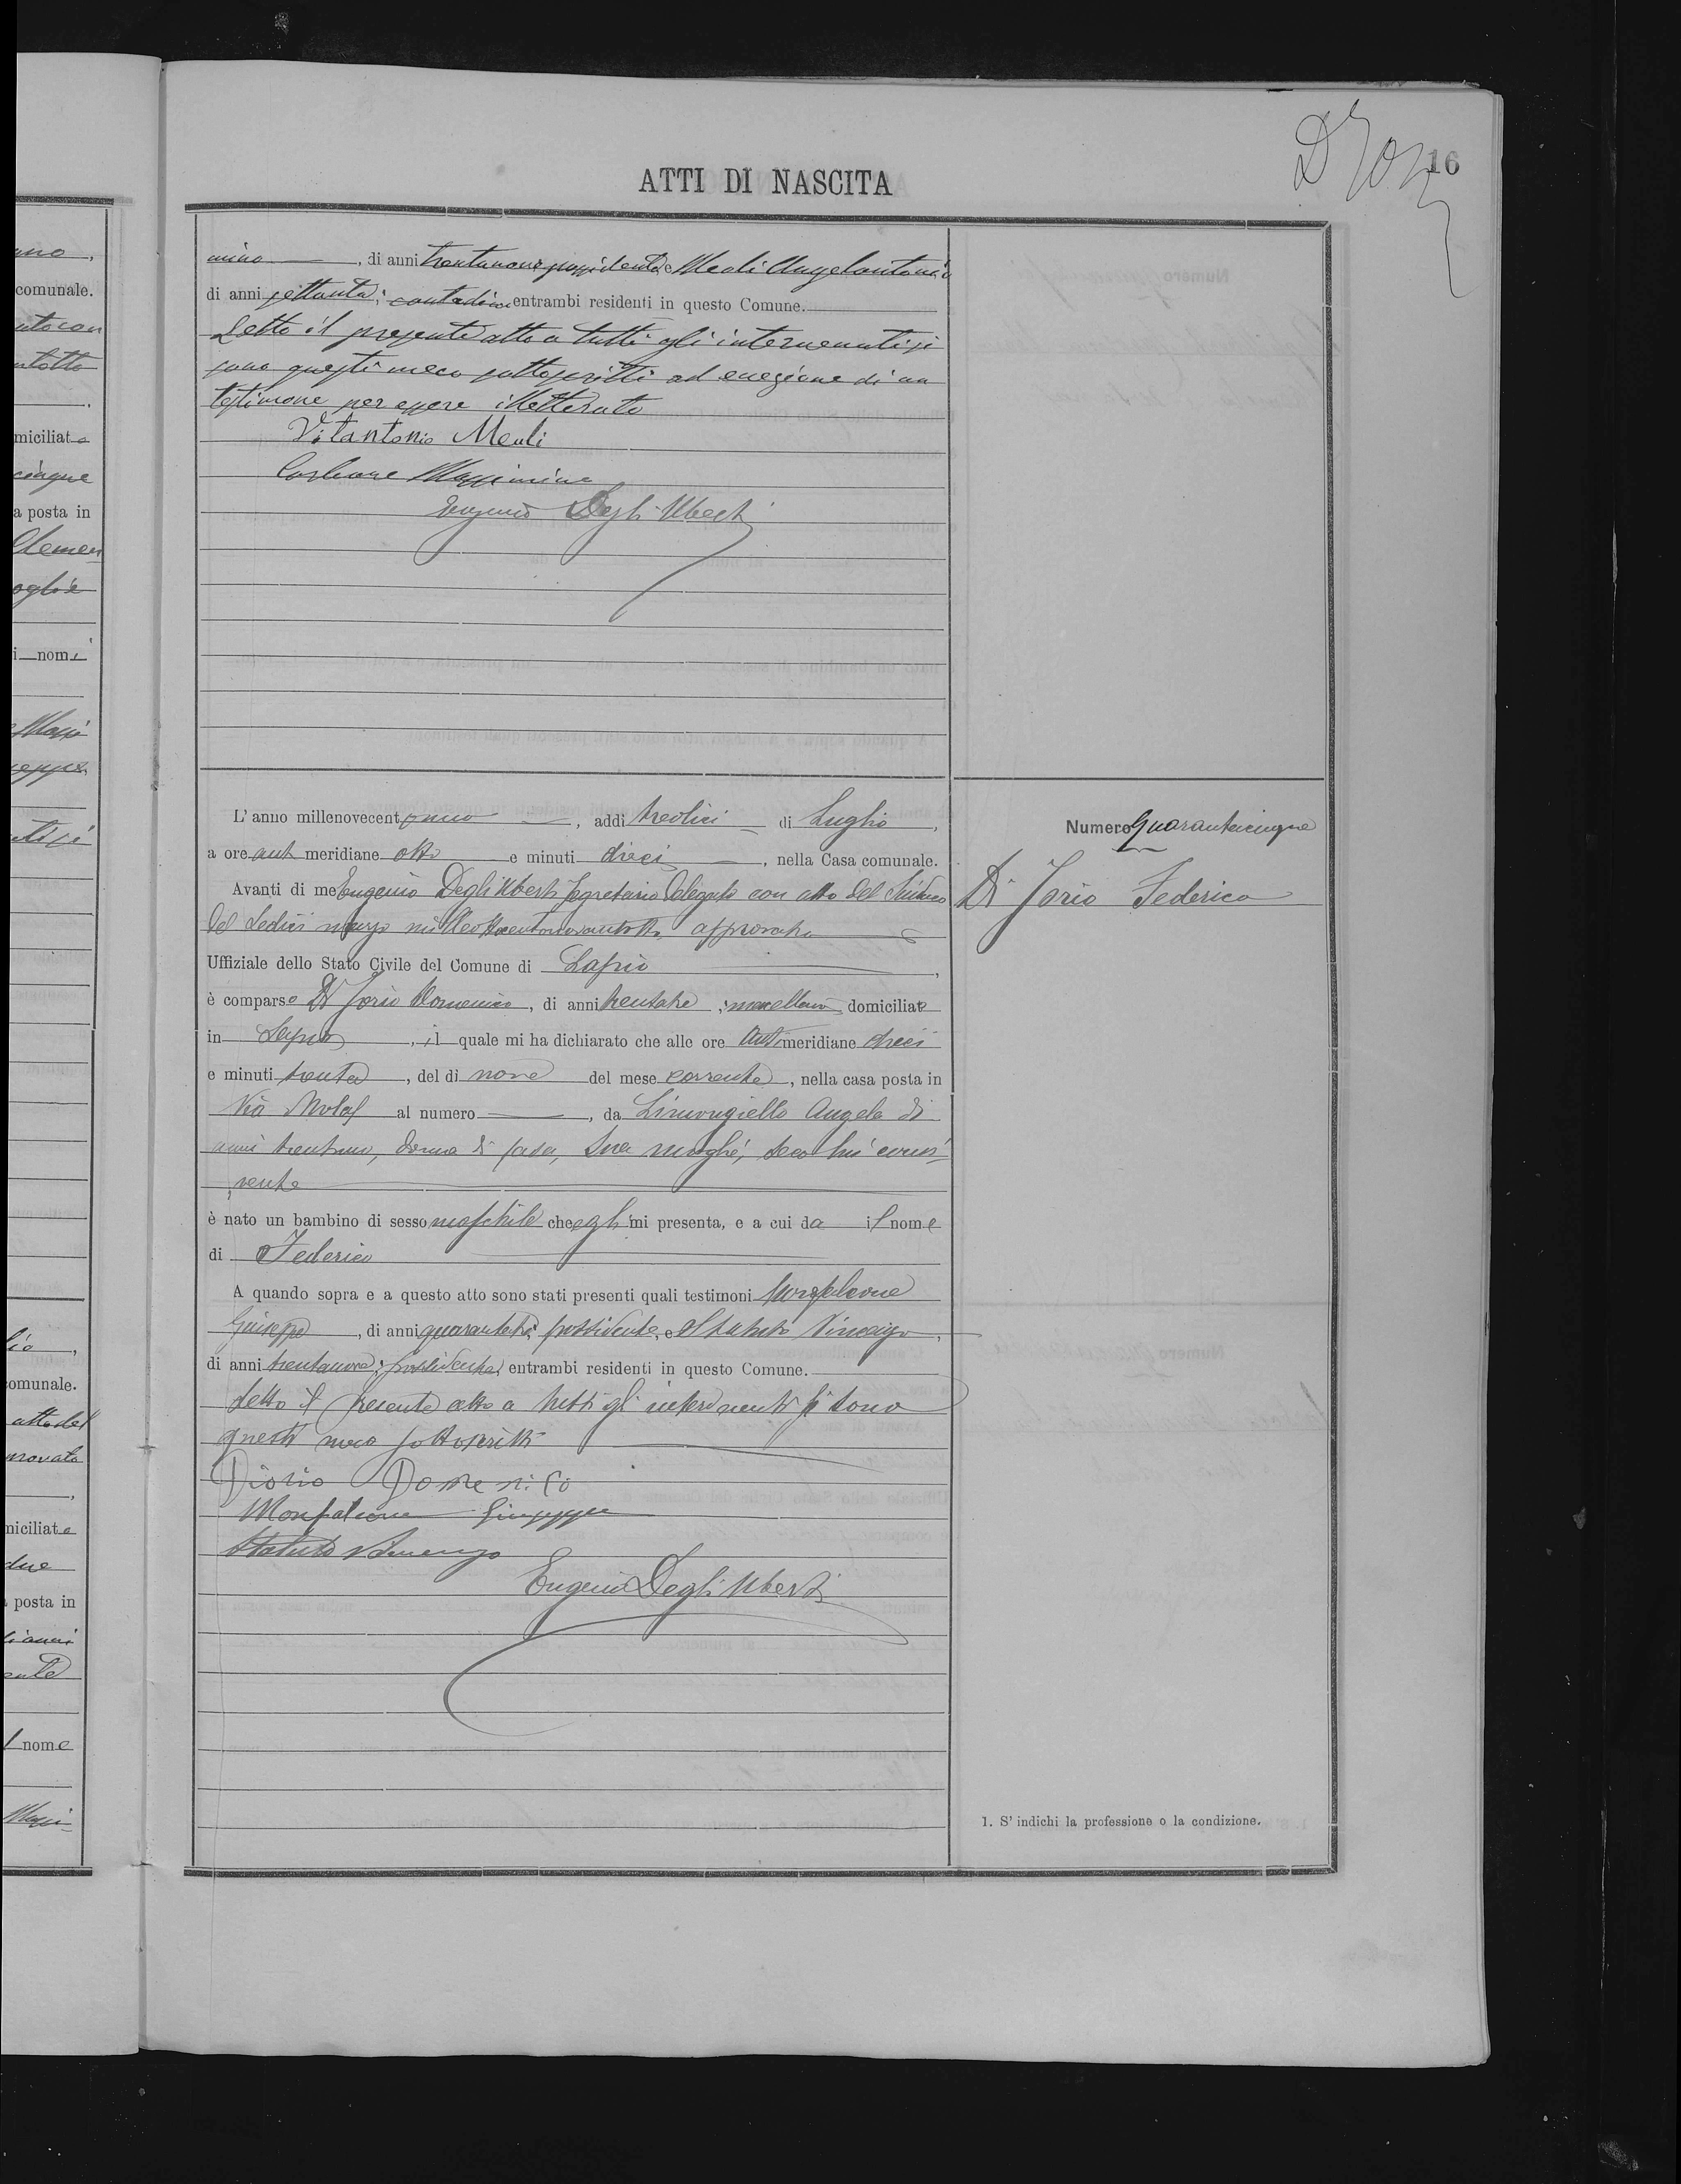 16
ATTI DI NASCITA
mino, di anni trentanove possidente e Meoli Angelantonio
di anni settanta; contadino entrambi residenti in questo Comune.
Letto il presente atto a tutti gli intervenuti si
sono questi meco sottoscritti ad eccezione di un
testimone per essere illetterato
Vitantonio Meoli
Carbone Massimino
Eugenio Degli Uberti
L' anno millenovecentouno, addi tredici di Luglio,
a ore anti meridiane otto e minuti dieci, nella Casa comunale.
Avanti di me Eugenio Degli Uberti Segretario Delegato con atto del Sindaco
del sedici marzo milleottocentonovantotto approvato
Uffiziale dello Stato Civile del Comune di Lapio,
è comparso Di Jorio Domenico, di anni trentatre; macellaio domiciliato
in Lapio, il quale mi ha dichiarato che alle ore antimeridiane dieci
e minuti trenta, del di nove del mese corrente, nella casa posta in
Via al numero, da Limongiello Angela di
anni trentuno, donna di casa, sua moglie, seco lui convi-
vente
è nato un bambino di sesso maschile che egli mi presenta, e a cui da il nome
di Federico
A quando sopra e a questo atto sono stati presenti quali testimoni Monfalcone
Giuseppe, di anni quarantatre; possidente, e Statuto Vincenzo,
di anni trentanove; possidente, entrambi residenti in questo Comune.
Letto il presente atto a tutti gl' intervenuti si sono
questi meco sottoscritti
Diorio Domenico
Monfalcone Giuseppe
Statuto Vincenzo
Eugenio Degli Uberti
Numero Quarantacinque
Di Jorio Federico
1. S' indichi la professione o la condizione.
uno,
comunale.
miciliato
cinque
a posta in
Clemen
oglie
i nomi
Massi
lio,
comunale.
atto del
provato
miciliato
due
posta in
di anni
l nome
Massi-